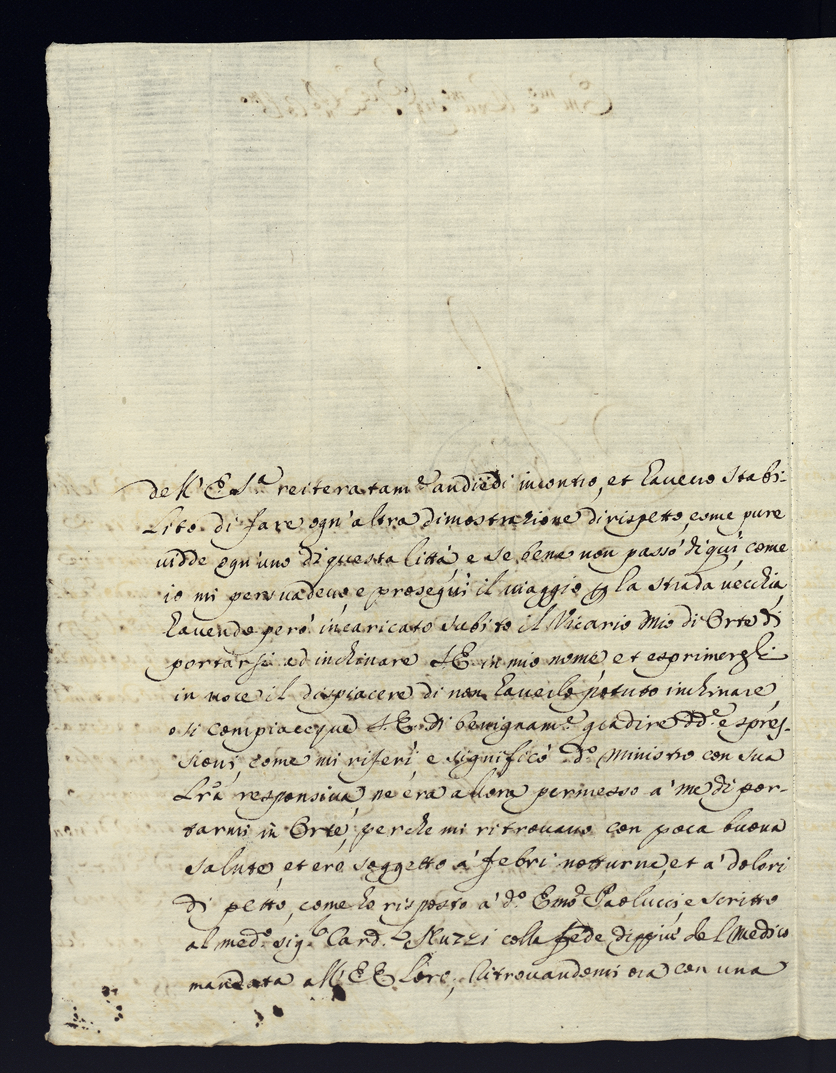 dell' E. Sua reiteratam.e andiedi incontro, et havevo stabi-
lito di fare ogn'altra dimostrazione di rispetto, come pure
vidde ogn'uno di questa Città, e se bene non passò di quì, come
io mi persuadevo, e proseguì il viaggio p la strada vecchia,
havendo però incaricato subito il Vicario mio di Orte di
portarsi ad inchinare S.E. in mio nome, et esprimergli
in voce il dispiacere di non haverlo potuto inchinare,
e si compiacque S.E. di benignam.e gradire dd.e espres-
sioni, come mi riferì, e significò d.o Ministro con sua
Lr̃a responsiva, ne era allora permesso à me di por-
tarmi in Orte, perche mi ritrovavo con poca buona
salute, et ero soggetto à febri notturne, et à dolori
di petto, come hò risposto à d.o Emo Paolucci, e scritto
al med.o Sig.r Card.l Nuzzi colla fede di più del Medico
mandata all' EE Loro, ritrovandomi ora con una